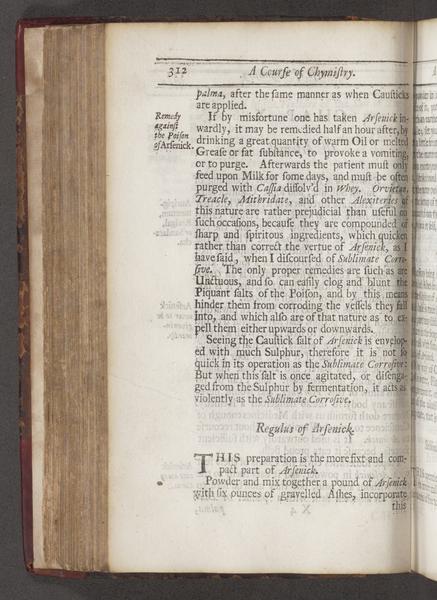 312 A Courſe of Chymiſtry.
palma, after the same manner as when Cauſticks
are applied.
If by misfortune one has taken Arſenick in-
wardly, it may be remedied half an hour after, by
drinking a great quantity of warm Oil or melted
Greaſe or fat ſubſtance, to provoke a vomiting,
or to purge. Afterwards the patient muſt only
feed upon Milk for ſome days, and muſt be often
purged with Caſſia diſſolv'd in Whey. Orvietan,
Treacle, Mithridate, and other Alexiteries of
this nature are rather prejudicial than uſeful on
ſuch occaſions, becauſe they are compounded of
ſharp and ſpiritous ingredients, which quicken
rather than correct the vertue of Arſenick, as I
have ſaid, when I diſcourſed of Sublimate Corro-
ſive. The only proper remedies are ſuch as are
Unctuous, and ſo can eaſily clog and blunt the
Piquant ſalts of the Poiſon, and by this means
hinder them from corroding the veſſels they fall
into, and which alſo are of that nature as to ex-
pell them either upwards or downwards.
Seeing the Cauſtick ſalt of Arſenick is envelop-
ed with much Sulphur, therefore it is not ſo
quick in its operation as the Sublimate Corroſive:
But when this ſalt is once agitated, or diſenga-
ged from the Sulphur by fermentation, it acts as
violently as the Sublimate Corroſive.
Regulus of Arſenick.
THIS preparation is the more fixt and com-
pact part of Arſenick.
Powder and mix together a pound of Arſenick
with ſix ounces of gravelled Aſhes, incorporate
this
Remedy
againſt
the Poiſon
of Arſenick.